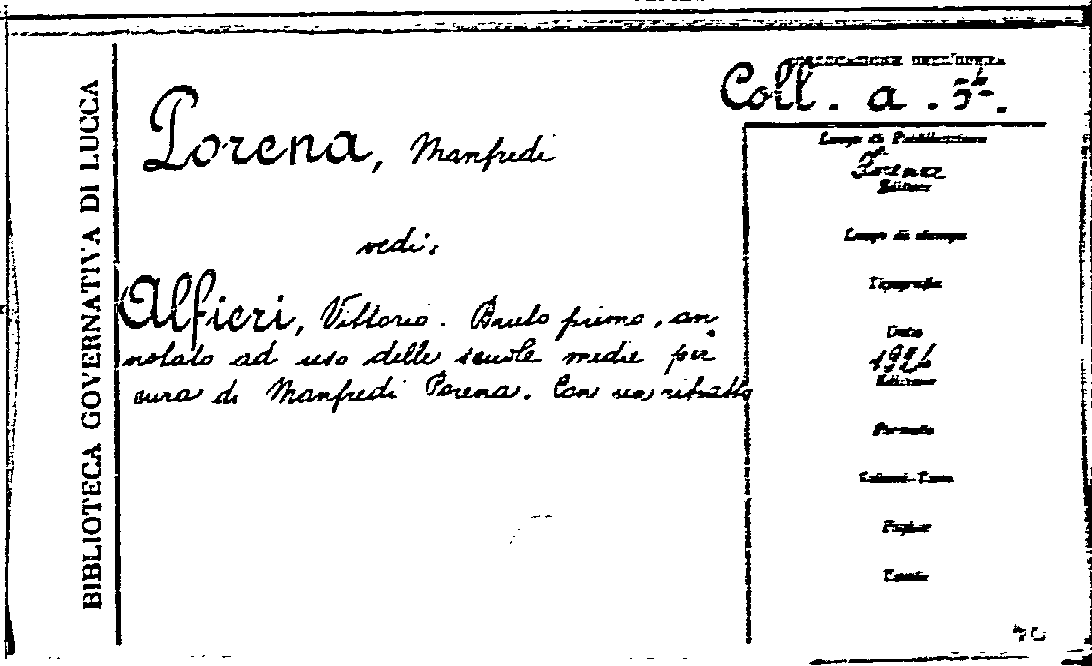 BIBLIOTECA GOVERNATIVA DI LUCCA
COLLOCAZIONE DELL'OPERA
Coll. a. 5
Porena, Manfredi
vedi:
Alfieri, Vittorio. Bruto primo, an
notato ad uso delle scuole medie per
cura di Manfredi Porena. Con un ritratto
Luogo di Pubblicazione
Firenze
Editore
Luogo di stampa
Tipografia
Data
Edizione
Formato
Volumi-Tomo
Pagine
Tavole